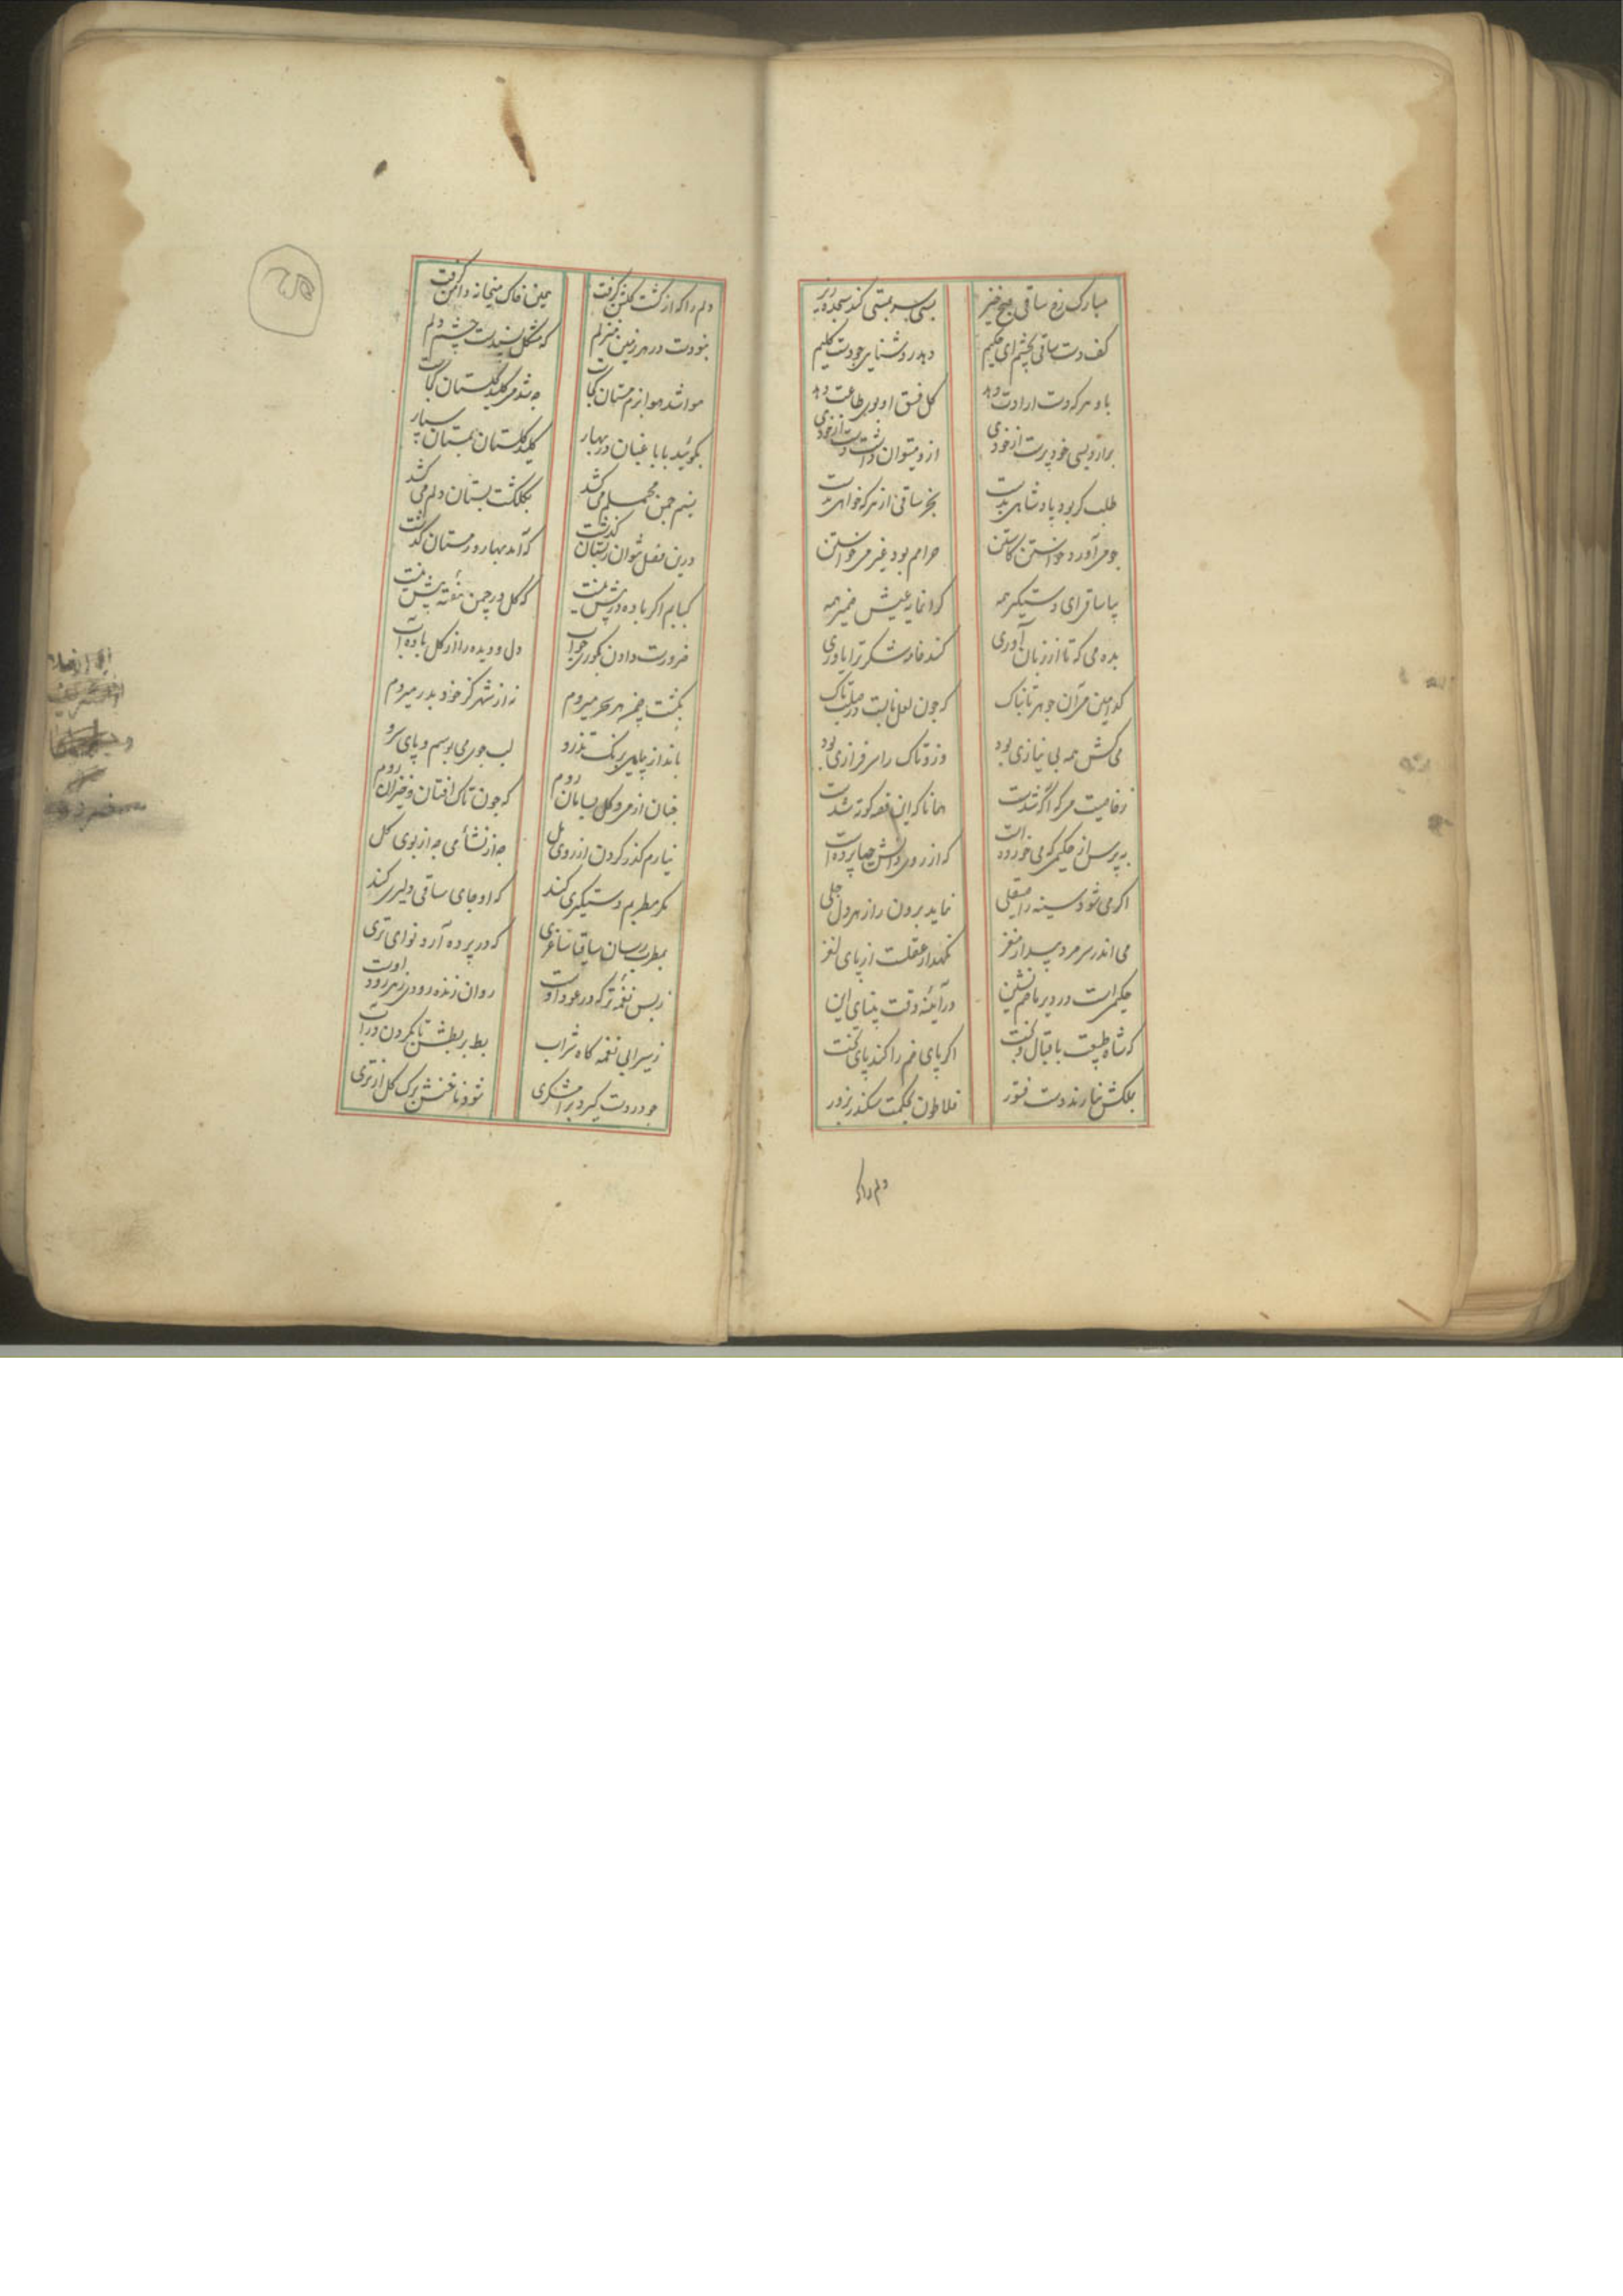 مبارک رخ ساقی صبح خیز بسی سر بمستی کند سجده ریز
کف دست ساقی بچشم ای حکیم دهد روشنایی چو دست کلیم
باو هر که دست ارادت دهد کل فسق او بوی طاعت دهد
برآرد بسی خود پرست از خودی ازو میتوان داشت دست از خودی
طلب کر بود پادشاهی بدست بخر ساقی از هر که خواهی بدست
چو می آورد خواستن کاستن حرام بود غیر می خواستن
بیا ساقی ای دستگیر همه کرانمایه عیش ضمیر همه
بده می که تا از زبان آوری کند خاک شکر ترا یاوری
کدامین می آن جوهر تابناک که چون لعل نابست در صلب تاک
می کش همه بی نیازی بود وزو تاک را سرفرازی بود
ز خاصیت می که آکه شدست همانا که این قصه کوته شدست
بپرس از حکیمی که می خورده است که از روی دانش چها برده است
اکر می شود سینه را صیقلی نماید برون راز هر دل جلی
می اندر سر مرد بیدار مغز نکهدار عقلست از پای لغز
حکیم است در دیر ما خم نشین در آیینه وقت بینای این
که شاه طبیعت باقبال و بخت اکر پای خم را کند پای تخت
بملکش نیارند دست فتور فلاطون بحکمت سکندر بزور
دلم را که
دلم را که از کشت کلشن کرفت همین خاک میخانه دامن کرفت
بنودت در هر زمین منزلم که مشکل پسندست چشم و دلم
هوا شد هوا بزم مستان کجاست چه شد می کلید کلستان کجاست
بکوئید با باغبان در بهار کلید کلستان بمستان سپار
نسیم چمن محملم می کشد بکلکشت بستان دلم می کشد
درین فصل نتوان ز بستان کذشت که آمد بهار و زمستان کذشت
کبابم اکر باده در پیش نیست که کل در چمن هفته بیش نیست
ضرورت دادن بکوری جواب دل و دیده را از کل باده آب
بکشت چمن هر سحر میروم نه از شهر کز خود بدر میروم
بانداز پای برنک تذرو لب جوی می بوسم و پای سرو
چنان از می و کل بسامان روم که چون تاک افتان و خیزان روم
نیارم کذر کردن از روی مل چه از نشأ می چه از بوی کل
مکر مطربم دستکیری کند که او جای ساقی دلیری کند
بمطرب رسان ساقیا ساغری که در پرده آرد نوای تری
ز بس نغمه تر که در عود اوست روان زنده رودی ز هر رود اوست
ز سیرابی نغمه کاه شراب بط بربطش تا بکردن در آب
چو در دست کیرد برامشکری شود ناخنش برک کل از تری